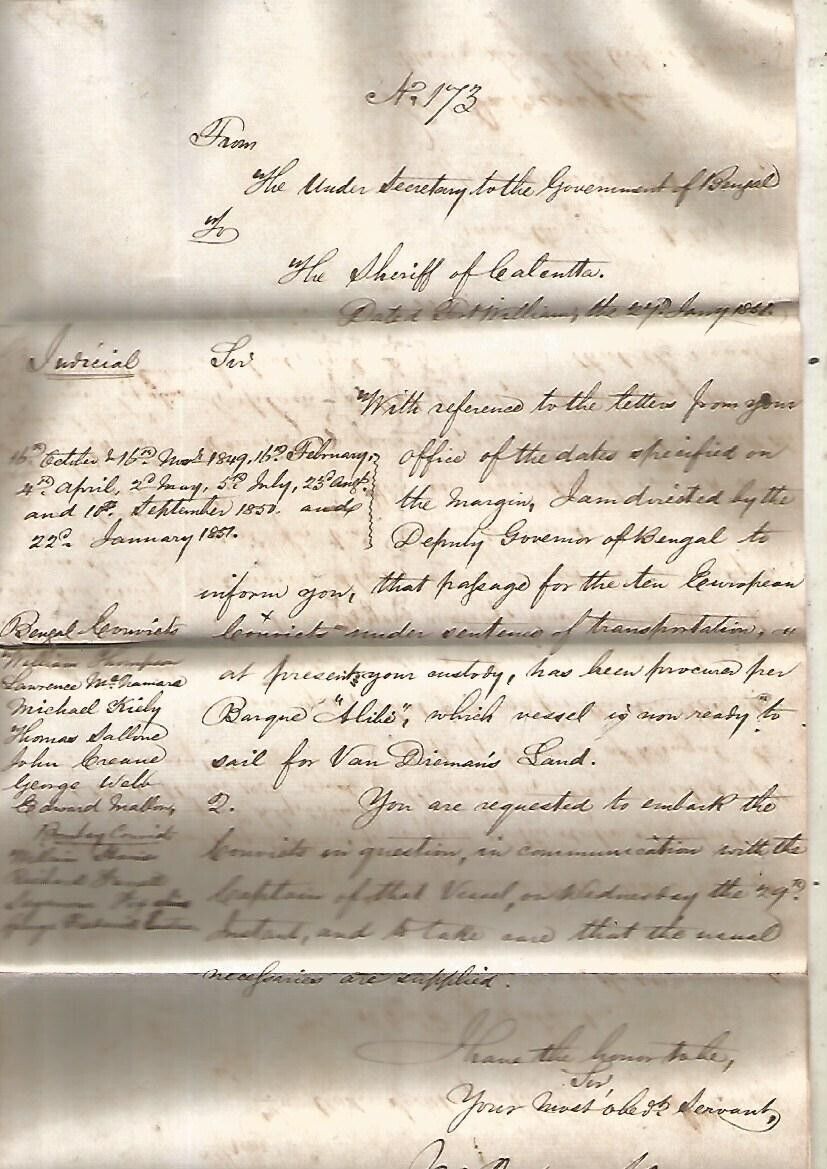 No. 173
From
The Under Secretary to the Government of Bengal
To
The Sheriff of Calcutta.
Dated Fort William, the Jany 1851.
Judicial
Sir
With reference to the letters from your
office of the dates specified on
the Margin, I am directed by the
Deputy Governor of Bengal to
16th October & 16th Novr 1849, 16th February,
4th April, 2d May, 5th July, 23d Augt.
and 10th September 1850. and
22d January 1851.
inform you, that passage for the ten European
Convicts under sentence of transportation,
at present your custody, has been procured per
Barque "Alibi", which vessel is now ready to
sail for Van Dieman's Land.
Bengal Convicts
William Thompson
Lawrence McNamara
Michael Kiely
Thomas
John Creane
George Webb
Edward Mallon,
Bombay Convicts
William
Richard
George Frederick
2. You are requested to embark the
Convicts in question, in communication with the
Captain of that Vessel, on Wednesday the 29th
Instant, and to take care that the usual
necessaries are supplied.
I have the honor to be,
Sir,
Your Most obedt. Servant,